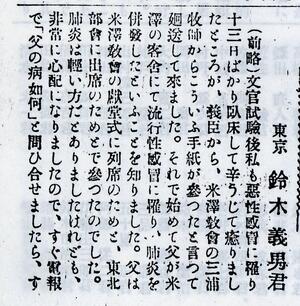 東京　鈴木義男君
（前略）文官試驗後私も惡性感冒に罹り
十三日ばかり臥床して辛うじて癒りまし
たところが、義臣から、米澤敎會の三浦
牧師からこういふ手紙が參つたと言つて
廻送して來ました。それで始めて父が米
澤の客舍にて流行性感冒に罹り、肺炎を
併發したといふことを知りました。父は
米澤敎會の獻堂式に列席のためと、東北
部會に出席のためとで參つたのでした。
肺炎は輕い方だとありましたけれども、
非常に心配になりましたので、すぐ電報
で、「父の病如何」と問ひ合せましたら、す